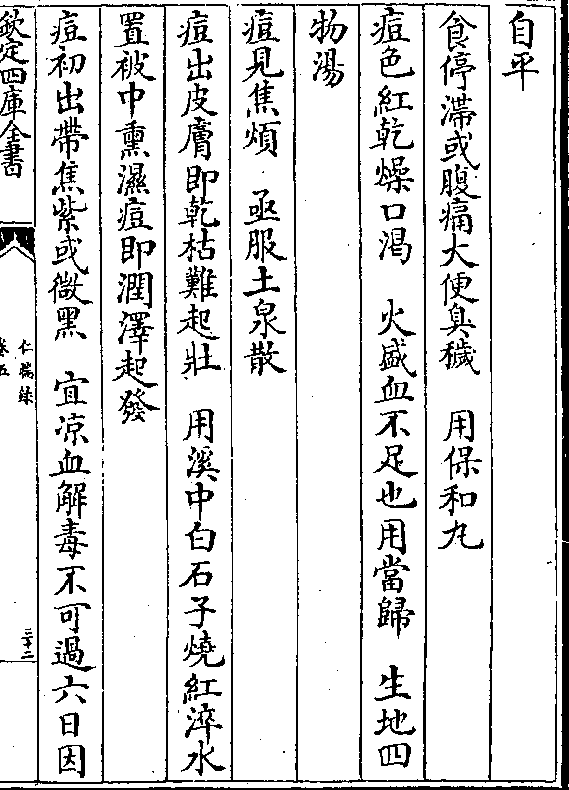 自平
食停滯或腹痛大便臭穢　用保和丸
痘色紅乾燥口渴　火盛血不足也用當歸　生地四
物湯
痘見焦煩　亟服土泉散
痘出皮膚即乾枯難起壯　用溪中白石子燒紅淬水
置被中熏濕痘即潤澤起發
痘初出帶焦紫或微黑　宜凉血解毒不可過六日因
欽定四庫全書
仁端錄
卷五
三十二